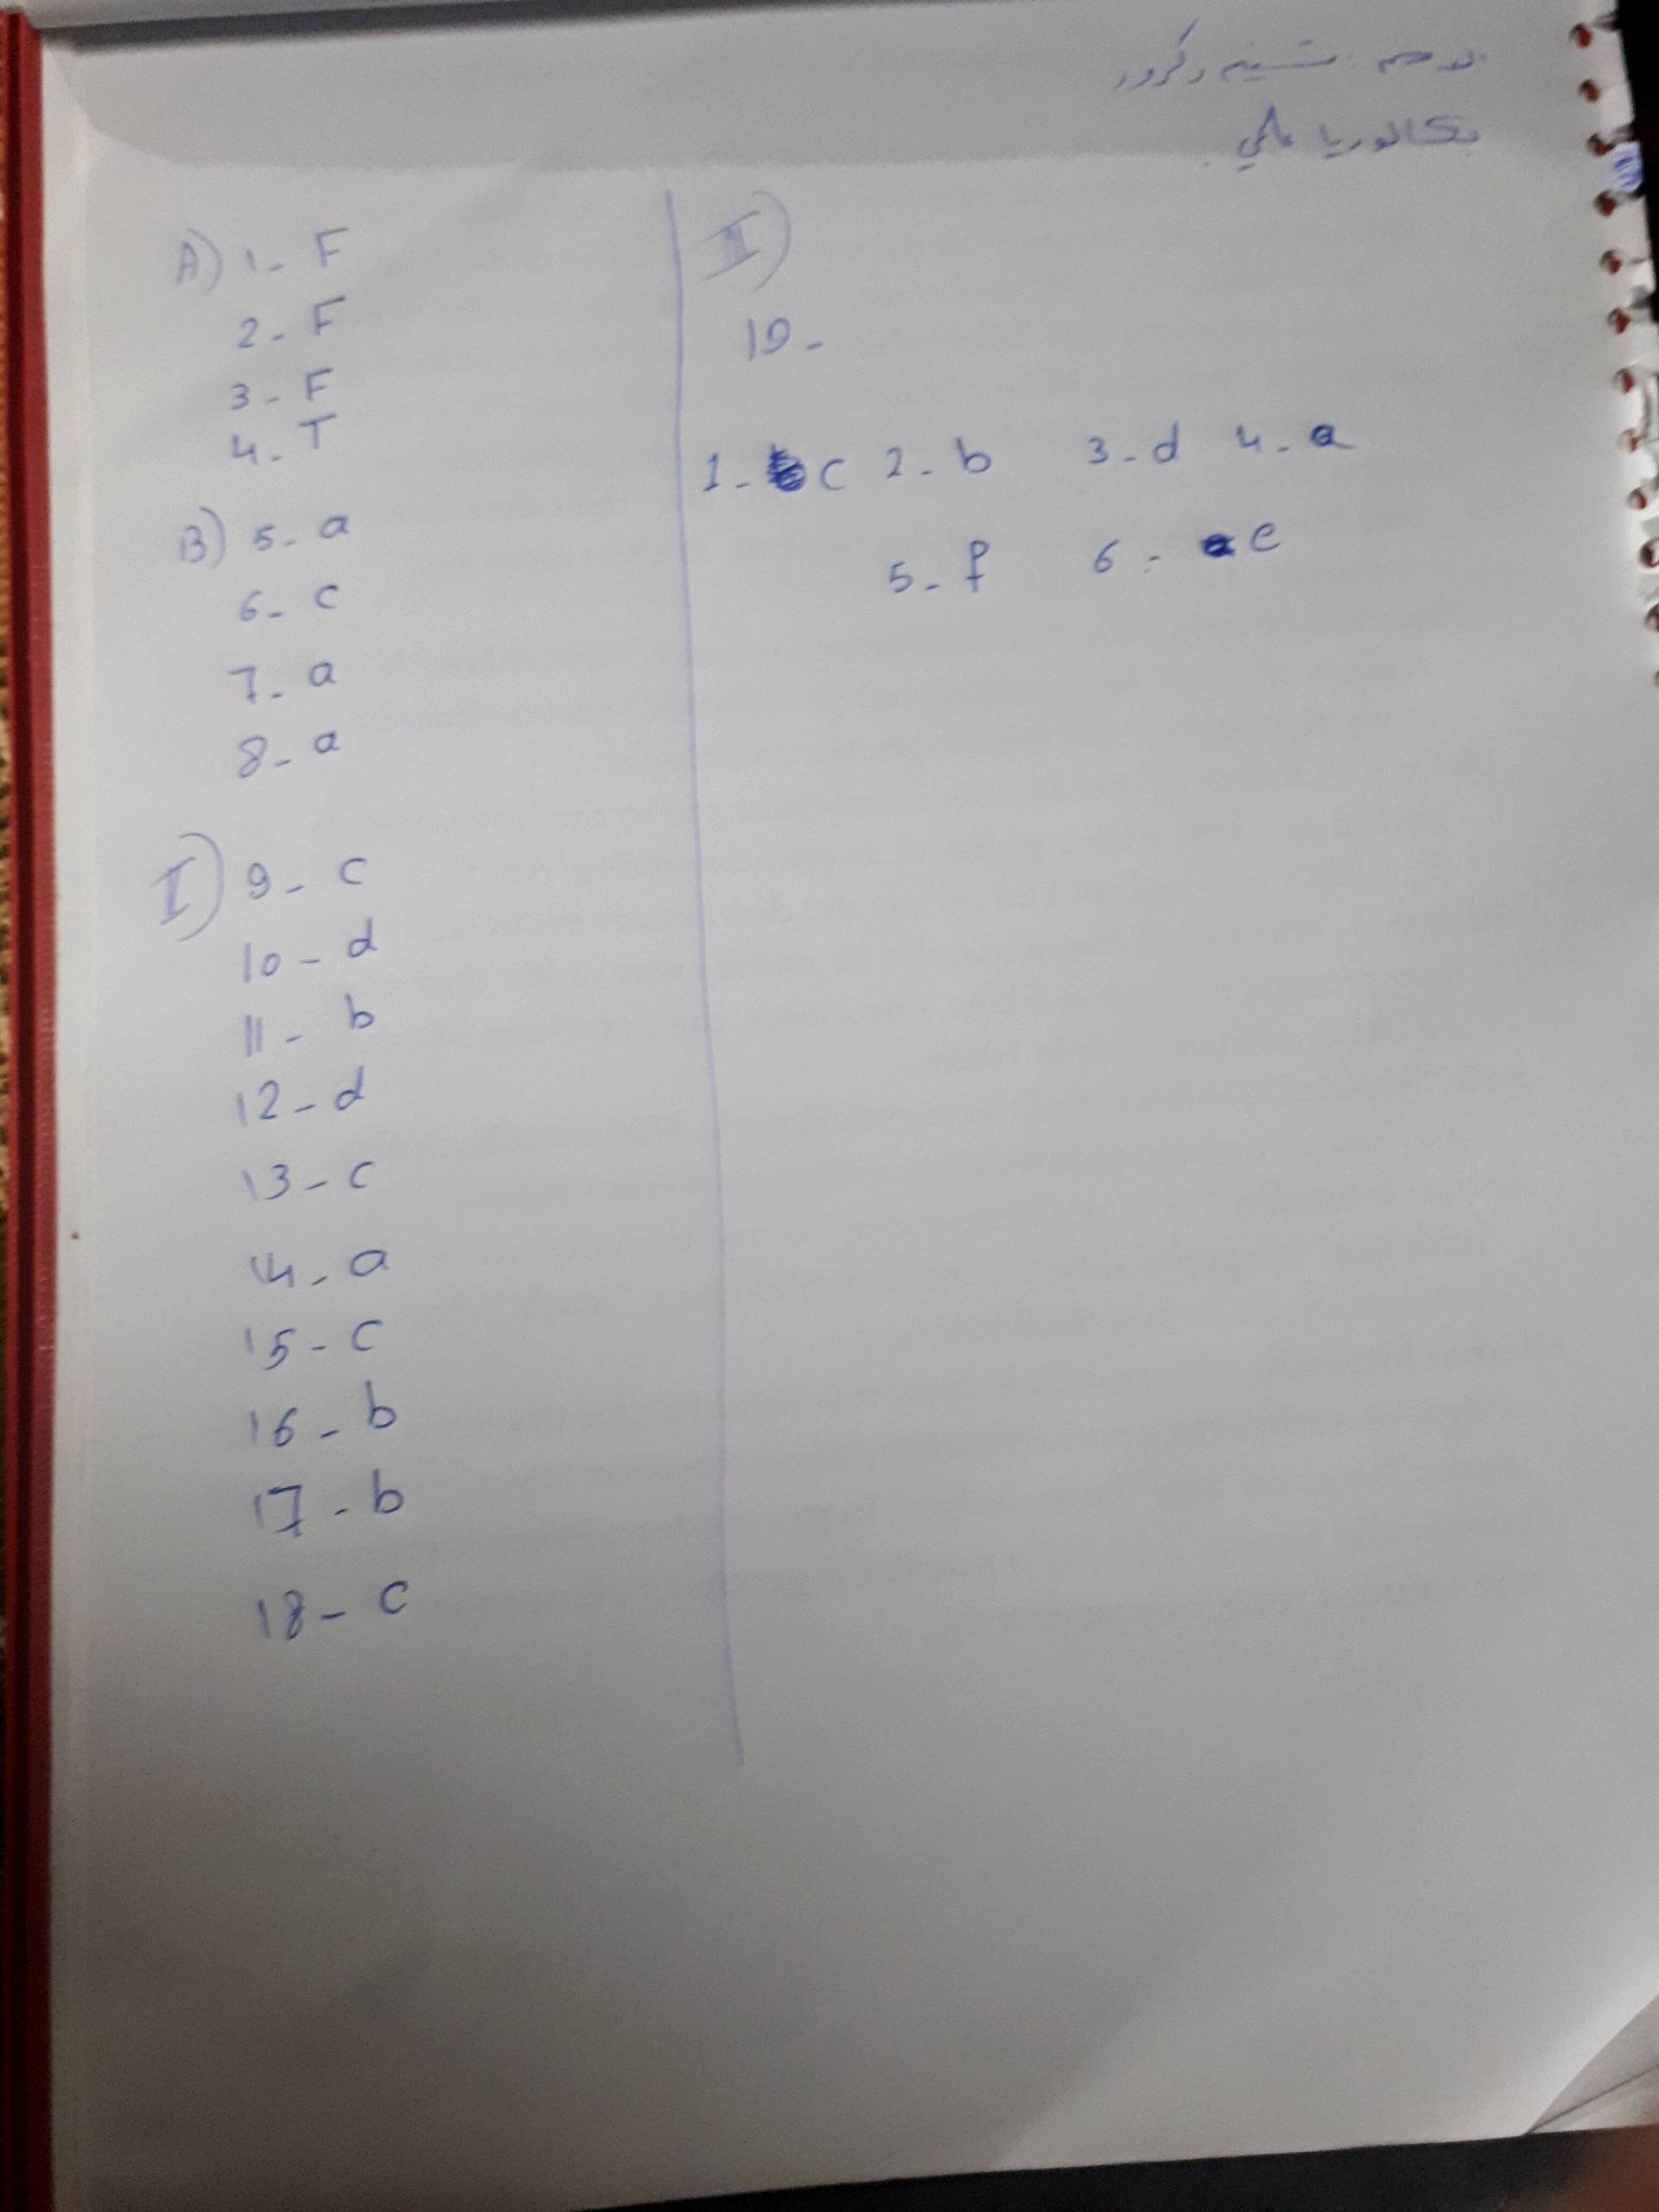 بكالوريا علمي
A) 1- F
2- F
3- F
4- T
B) 5- a
6- c
7- a
8- a
I) 9- c
10- d
11- b
12- d
13- c
14- a
15- c
16- b
17- b
18- c
II)
19-
1- c 2- b 3- d 4- a
5- f 6- e